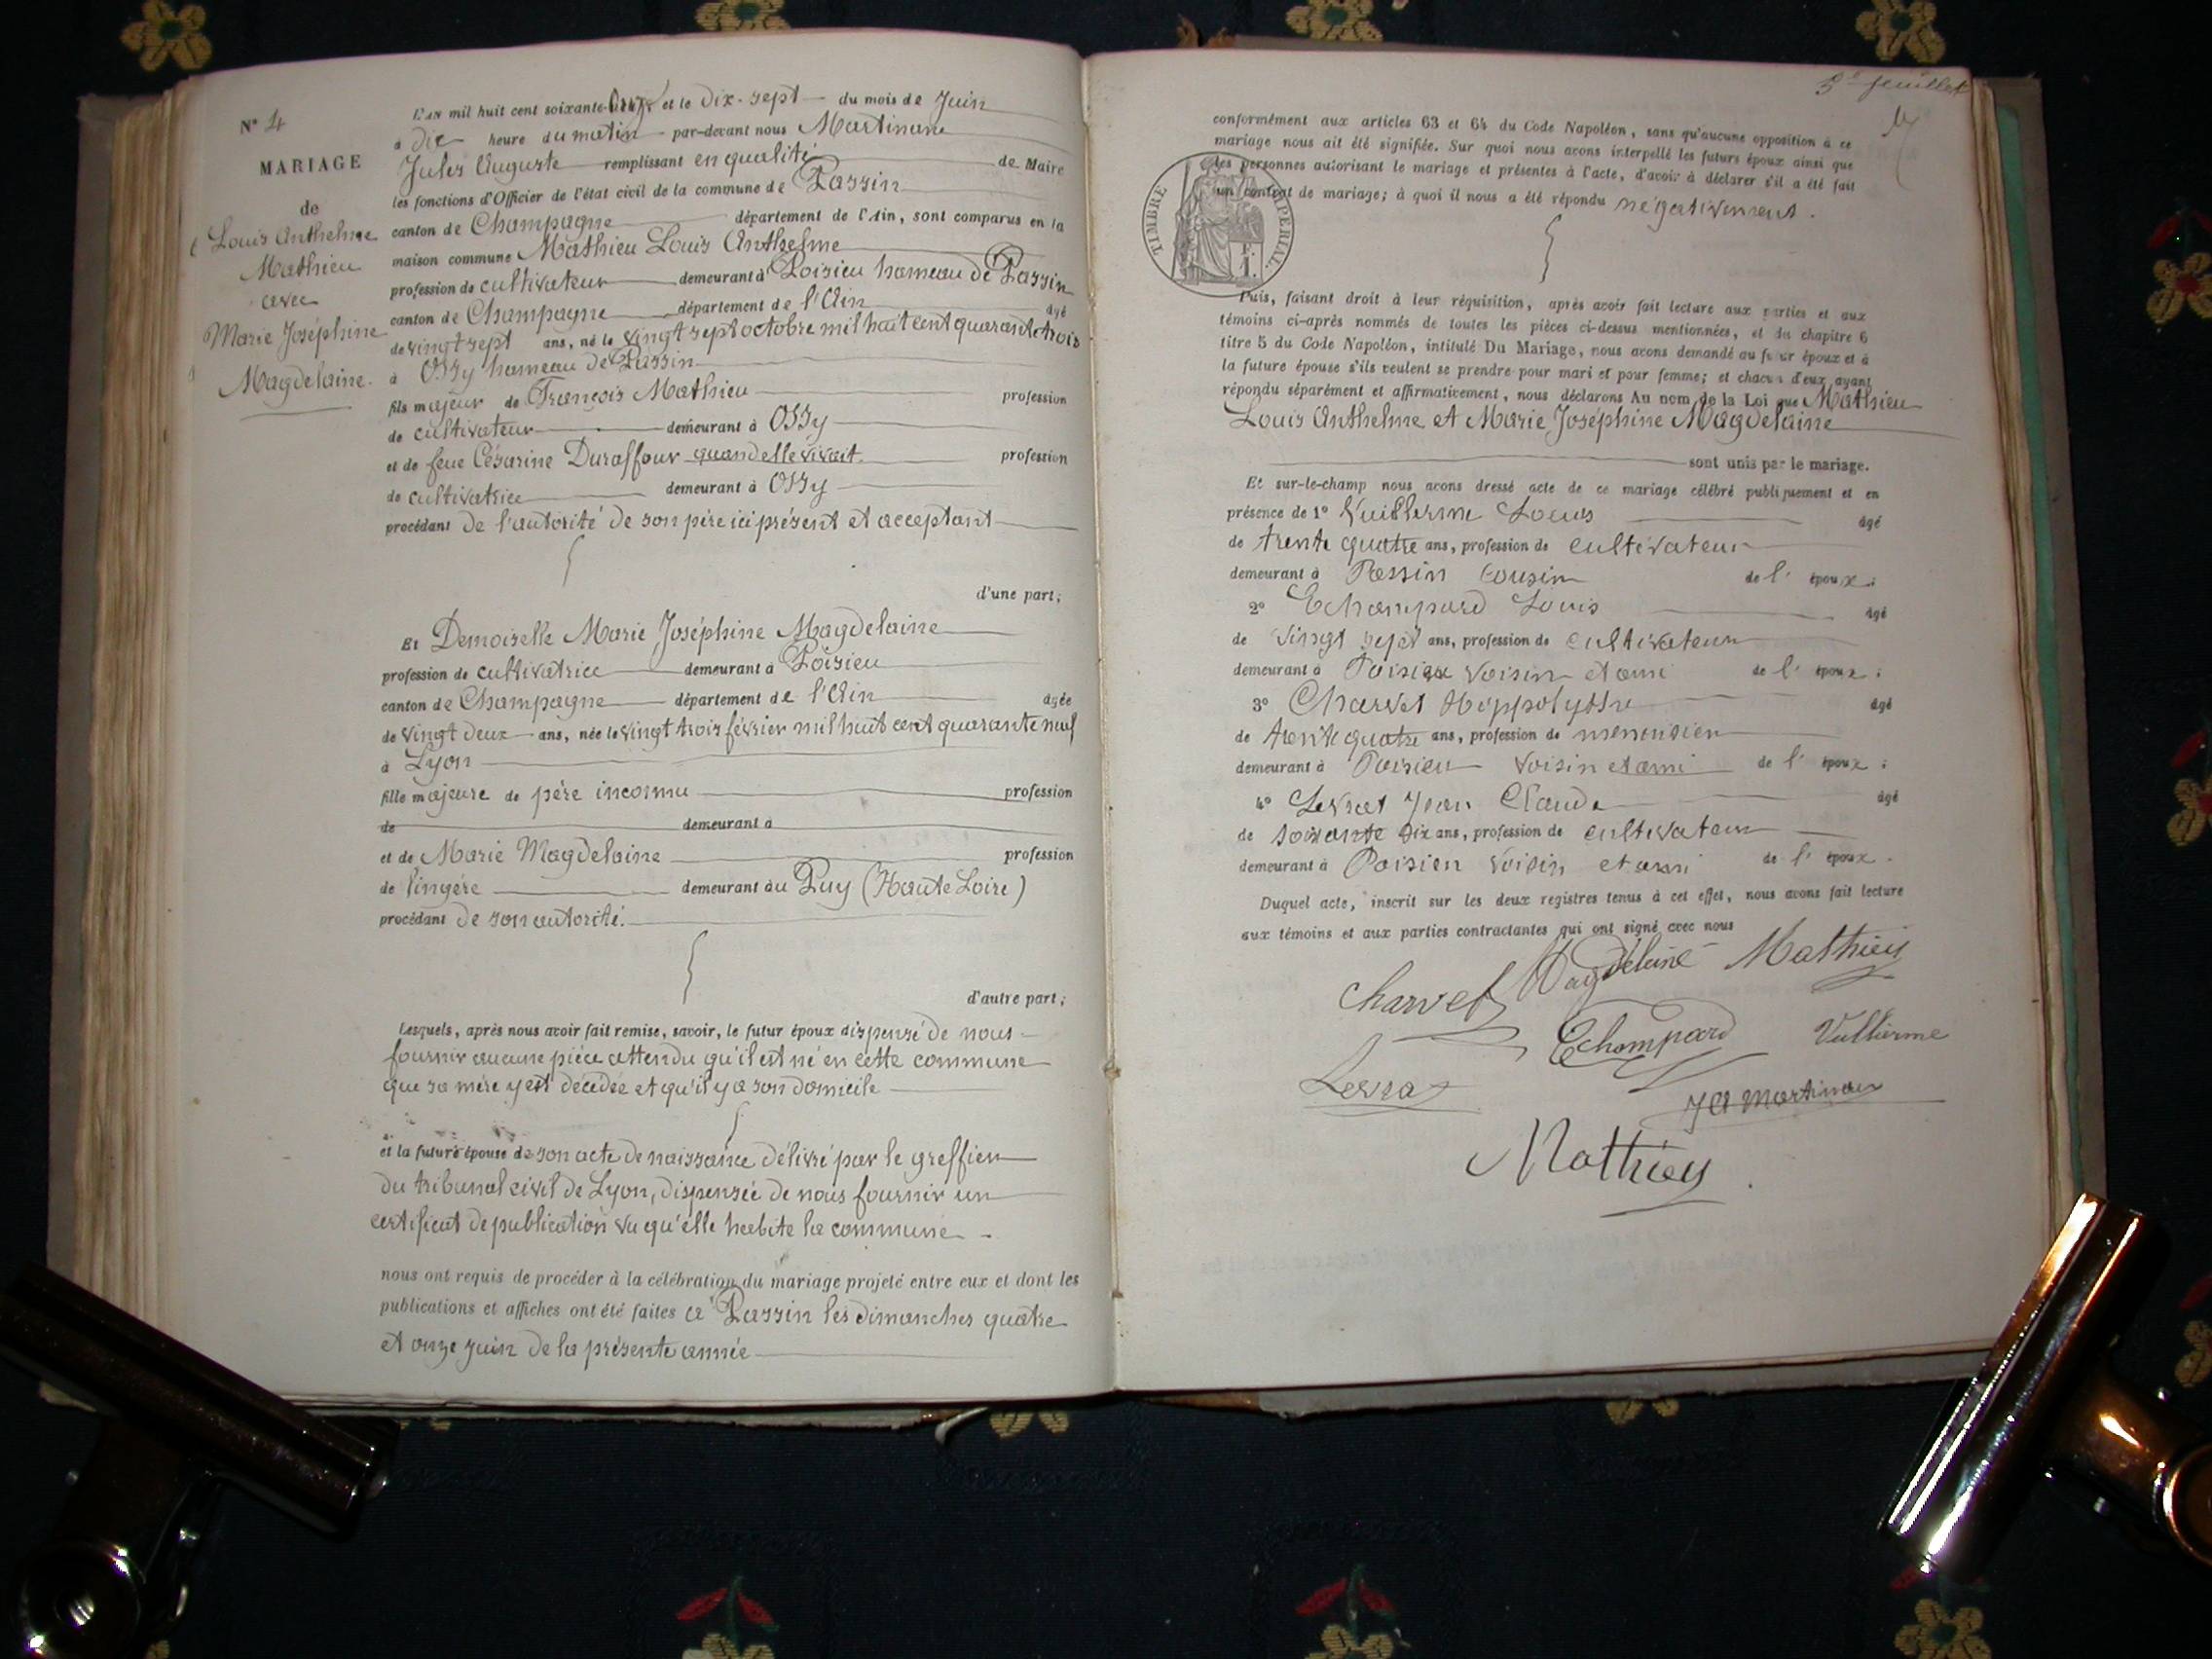 N° 4
MARIAGE
de
Louis Anthelme
Mathieu
avec
Marie Joséphine
Magdelaine.
L'an mil huit cent soixante-onze et le dix-sept du mois de Juin
à dix heure du matin par-devant nous Martinand
Jules Auguste remplissant en qualité de Maire
les fonctions d'Officier de l'état civil de la commune de Passin
canton de Champagne département de l'Ain, sont comparus en la
maison commune Mathieu Louis Anthelme
profession de cultivateur demeurant à Poisieu hameau de Passin
canton de Champagne département de l'Ain âgé
de vingt sept ans, né le vingt sept octobre mil huit cent quarante trois
à Ossy hameau de Passin
fils majeur de François Mathieu profession
de cultivateur demeurant à Ossy
et de feue Césarine Duraffour quand elle vivait profession
de cultivatrice demeurant à Ossy
procédant de l'autorité de son père ici présent et acceptant
d'une part;
Et Demoiselle Marie Joséphine Magdelaine
profession de cultivatrice demeurant à Poisieu
canton de Champagne département de l'Ain âgée
de vingt deux ans, née le vingt trois février mil huit cent quarante neuf
à Lyon
fille majeure de père inconnu profession
de demeurant à
et de Marie Magdelaine profession
de lingère demeurant au Puy (Haute Loire)
procédant de son autorité.
d'autre part;
Lesquels, après nous avoir fait remise, savoir, le futur époux dispensé de nous
fournir aucune pièce attendu qu'il est né en cette commune
que sa mère y est décédée et qu'il y a son domicile
et la future épouse de son acte de naissance délivré par le greffier
du tribunal civil de Lyon, dispensée de nous fournir un
certificat de publication vu qu'elle habite la commune -
nous ont requis de procéder à la célébration du mariage projeté entre eux et dont les
publications et affiches ont été faites à Passin les dimanches quatre
et onze juin de la présente année
3e feuillet
conformément aux articles 63 et 64 du Code Napoléon, sans qu'aucune opposition à ce
mariage nous ait été signifiée. Sur quoi nous avons interpellé les futurs époux ainsi que
les personnes autorisant le mariage et présentes à l'acte, d'avoir à déclarer s'il a été fait
un contrat de mariage; à quoi il nous a été répondu négativement.
TIMBRE IMPERIAL
F. 1.
Puis, faisant droit à leur réquisition, après avoir fait lecture aux parties et aux
témoins ci-après nommés de toutes les pièces ci-dessus mentionnées, et du chapitre 6
titre 5 du Code Napoléon, intitulé Du Mariage, nous avons demandé au futur époux et à
la future épouse s'ils veulent se prendre pour mari et pour femme; et chacun d'eux ayant
répondu séparément et affirmativement, nous déclarons Au nom de la Loi que Mathieu
Louis Anthelme et Marie Joséphine Magdelaine
sont unis par le mariage.
Et sur-le-champ nous avons dressé acte de ce mariage célébré publiquement et en
présence de 1° Vuillerme Louis âgé
de trente quatre ans, profession de cultivateur
demeurant à Passin Cousin de l'époux;
2° Echampard Louis âgé
de vingt sept ans, profession de cultivateur
demeurant à Poisieu voisin et ami de l'époux;
3° Charvet Hyppolythe âgé
de trente quatre ans, profession de menuisier
demeurant à Poisieu voisin et ami de l'époux;
4° Levrat Jean Claude âgé
de soixante dix ans, profession de cultivateur
demeurant à Poisieu voisin et ami de l'époux.
Duquel acte, inscrit sur les deux registres tenus à cet effet, nous avons fait lecture
aux témoins et aux parties contractantes qui ont signé avec nous
Magdeleine Mathieu
Charvet
Echampard Vullierme
Levrat
J A Martinand
Mathieu